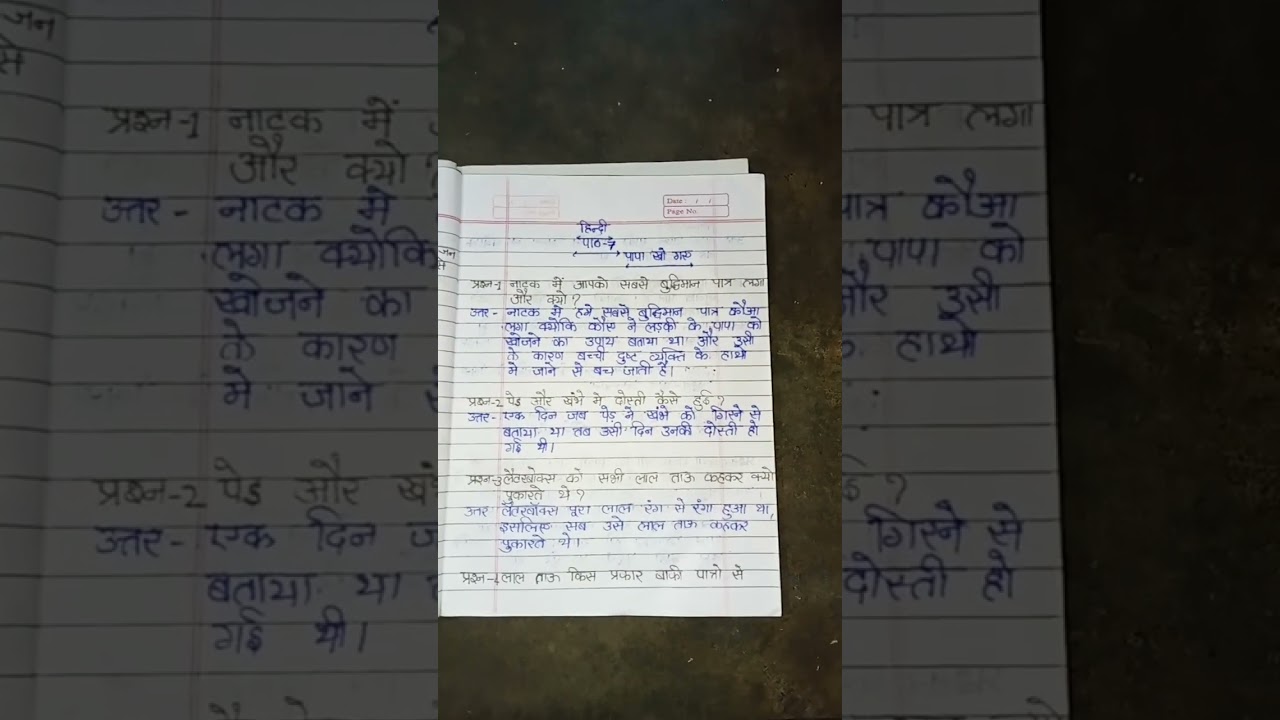 Date :
Page No.
हिन्दी
पाठ-7
पापा खो गए
प्रश्न-1 नाटक में आपको सबसे बुद्धिमान पात्र लगा
और क्यो ?
उत्तर - नाटक मे हमे सबसे बुद्धिमान पात्र कौआ
लगा क्योकि कौए ने लड़की के पापा को
खोजने का उपाय बताया था और उसी
के कारण बच्ची दुष्ट व्यक्ति के हाथो
मे जाने से बच जाती है।
प्रश्न-2 पेड और खंभे मे दोस्ती कैसे हुई ?
उत्तर - एक दिन जब पेड़ ने खंभे को गिरने से
बताया था तब उसी दिन उनकी दोस्ती हो
गई थी।
प्रश्न-3 लैटरबोक्स को सभी लाल ताऊ कहकर क्यो
पुकारते थे ?
उत्तर लैटरबॉक्स पूरा लाल रंग से रंगा हुआ था,
इसलिए सब उसे लाल ताऊ कहकर
पुकारते थे।
प्रश्न-4 लाल ताऊ किस प्रकार बाकी पात्रो से